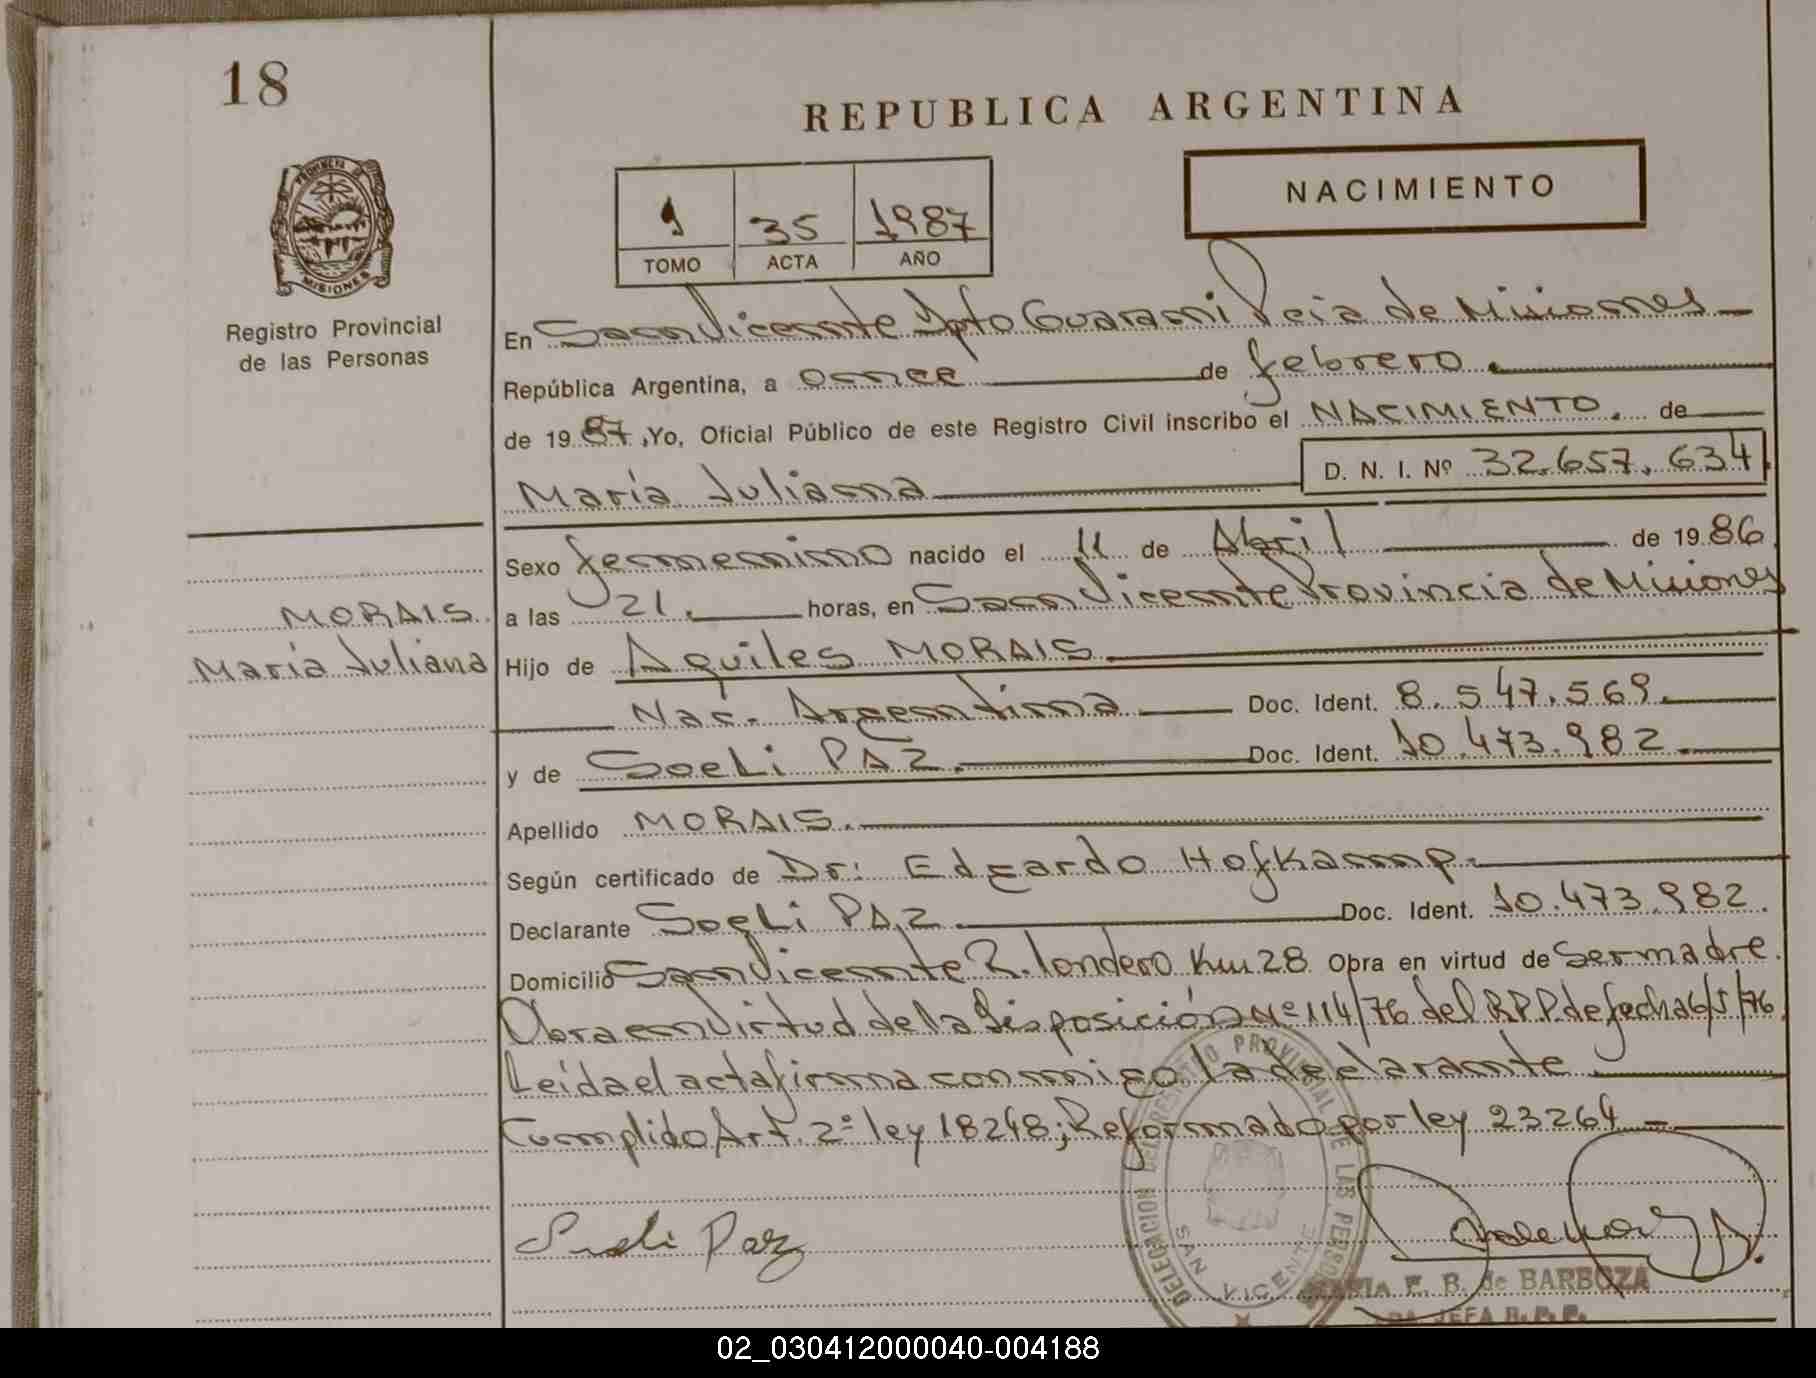 18
REPUBLICA ARGENTINA
PROVINCIA DE
MISIONES
Registro Provincial
de las Personas
1 35 1987
TOMO ACTA AÑO
NACIMIENTO
En San Vicente Dpto Guarani Pcia de Misiones
República Argentina, a once de febrero
de 1987, Yo, Oficial Público de este Registro Civil inscribo el NACIMIENTO. de
María Juliana D. N. I. Nº 32.657.634
Sexo femenino nacido el 11 de Abril de 1986
a las 21. horas, en San Vicente Provincia de Misiones
MORAIS.
María Juliana
Hijo de Aquiles MORAIS
Nac. Argentina Doc. Ident. 8.547.569.
y de Soeli PAZ. Doc. Ident. 10.473.982.
Apellido MORAIS.
Según certificado de Dr: Edgardo Hofkamp.
Declarante Soeli PAZ Doc. Ident. 10.473.982.
Domicilio San Vicente R. londero Km 28 Obra en virtud de Ser madre.
Obra en virtud de la Disposición Nº 114/76 del R.P.P. de fecha 6/5/76
Leída el acta firma conmigo la declarante
Cumplido Art. 2º ley 18248; Reformado por ley 23264
Sueli Paz
DELEGACION DEL REGISTRO PROVINCIAL DE LAS PERSONAS
SAN VICENTE
MARIA E. B. de BARBOZA
JEFA R. P. P.
02_030412000040-004188